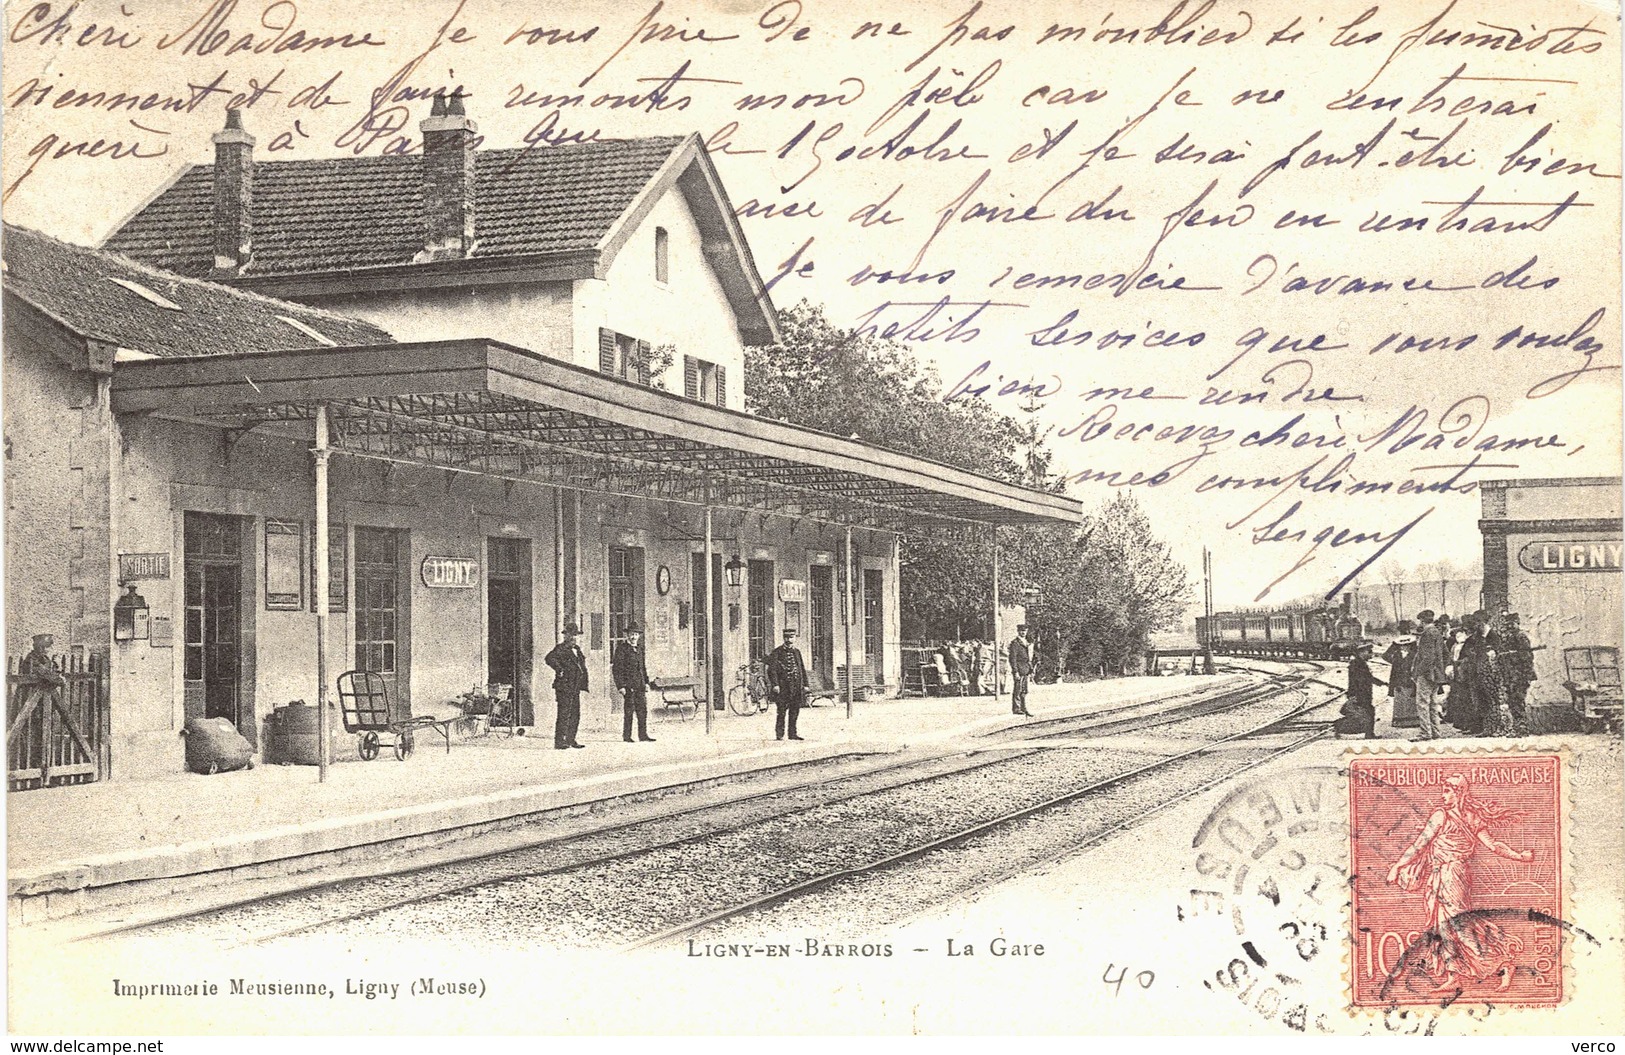 Chère Madame je vous prie de ne pas m'oublier si les fumistes
viennent et de faire remonter mon poële car je ne rentrerai
guère à Paris que le 15 octobre et je serai peut-être bien
aise de faire du feu en rentrant
Je vous remercie d'avance des
petits services que vous voulez
bien me rendre.
Recevez chère Madame,
mes compliments
SORTIE
LIGNY
LIGNY
LIGNY
REPUBLIQUE FRANÇAISE
10c
POSTES
MEUSE
LIGNY-EN-BARROIS — LA GARE
Imprimerie Meusienne, Ligny (Meuse)
40
www.delcampe.net
verco